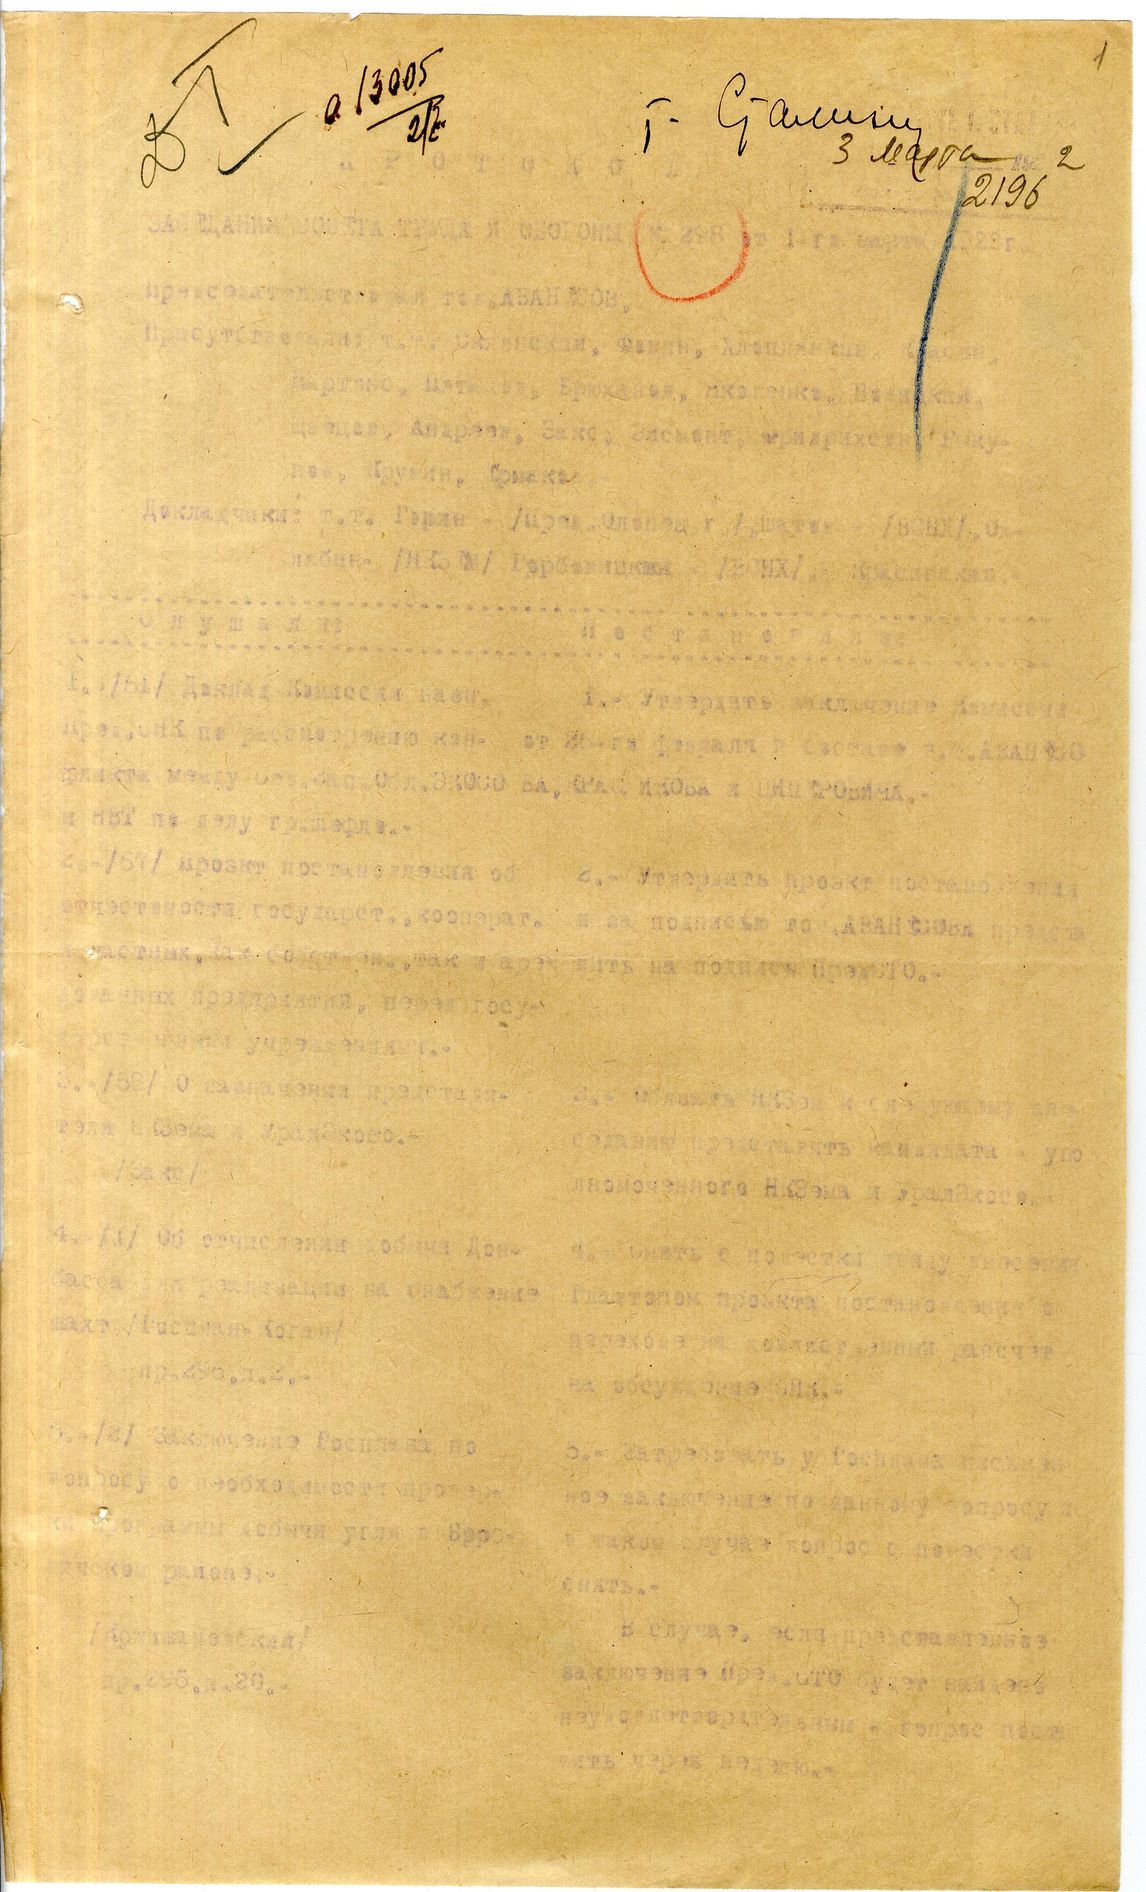 1
а 13005
2/III
т. Сталину
3 марта 2
2196
П Р О Т О К О Л
ЗАСЕДАНИЯ СОВЕТА ТРУДА И ОБОРОНЫ № 298 от 1-го марта 1922г.
Председательствовал тов.АВАНЕСОВ,
Присутствовали: т.т. Склянский, Фомин, Хлоплянкин,
Мартенс, Пятаков, Брюханов, Яковенко,
Андреев, Закс, Элемент, Фридрихсон,
нов, Крумин, Ермаков.-
Докладчики: т.т. Гершн - /ВСНХ/,
/НКЗем/ Гербовицкий - /ВСНХ/.- Красинский.-
С л у ш а л и: П о с т а н о в и л и:
1./51/ Доклад Комиссии назн.
Пред.СНК по рассмотрению кон-
фликта между Сев.Зап.Обл.ЭКОСО
и НВТ по делу гр.Шефле.-
1.- Утвердить заключение Комиссии
от 28-го февраля в составе т.т.АВАНЕСО
ВА, КРАСИКОВА и ЦИПЕРОВИЧА.-
2.-/57/ Проэкт постановления об
отчетности государст.,кооперат.
и частных,как собствен.,так и арен
дованных предприятий, перед госу-
дарственными учреждениями.-
2.- Утвердить проэкт постановления
и за подписью тов.АВАНЕСОВА предста
вить на подпись ПредСТО.-
3.-/58/ О назначении представи-
теля НКЗема в УралЭкосо.-
/Закс/
3.- Обязать НКЗем к следующему за-
седанию представить кандидата - упо
лномоченного НКЗема в УралЭкосо.-
4.-/1/ Об отчислении добычи Дон-
басса для реализации на снабжение
шахт./Госплан-Коган/
пр.296,п.2.-
4.- Снять с повестки ввиду внесения
Главтопом проэкта постановления о
переходе на хозяйственный рассчет
на обсуждение СНК.-
5.-/2/ Заключение Госплана по
вопросу о необходимости провер-
ки программы добычи угля в Боро-
вичском районе.-
/Кржижановский/
пр.296,п.20.-
5.- Затребовать у Госплана письмен-
ное заключение по данному вопросу и
в таком случае вопрос с повестки
снять.-
В случае, если представленное
заключение Пред.СТО будет найдено
неудовлетворительным - вопрос поста
вить через неделю.-